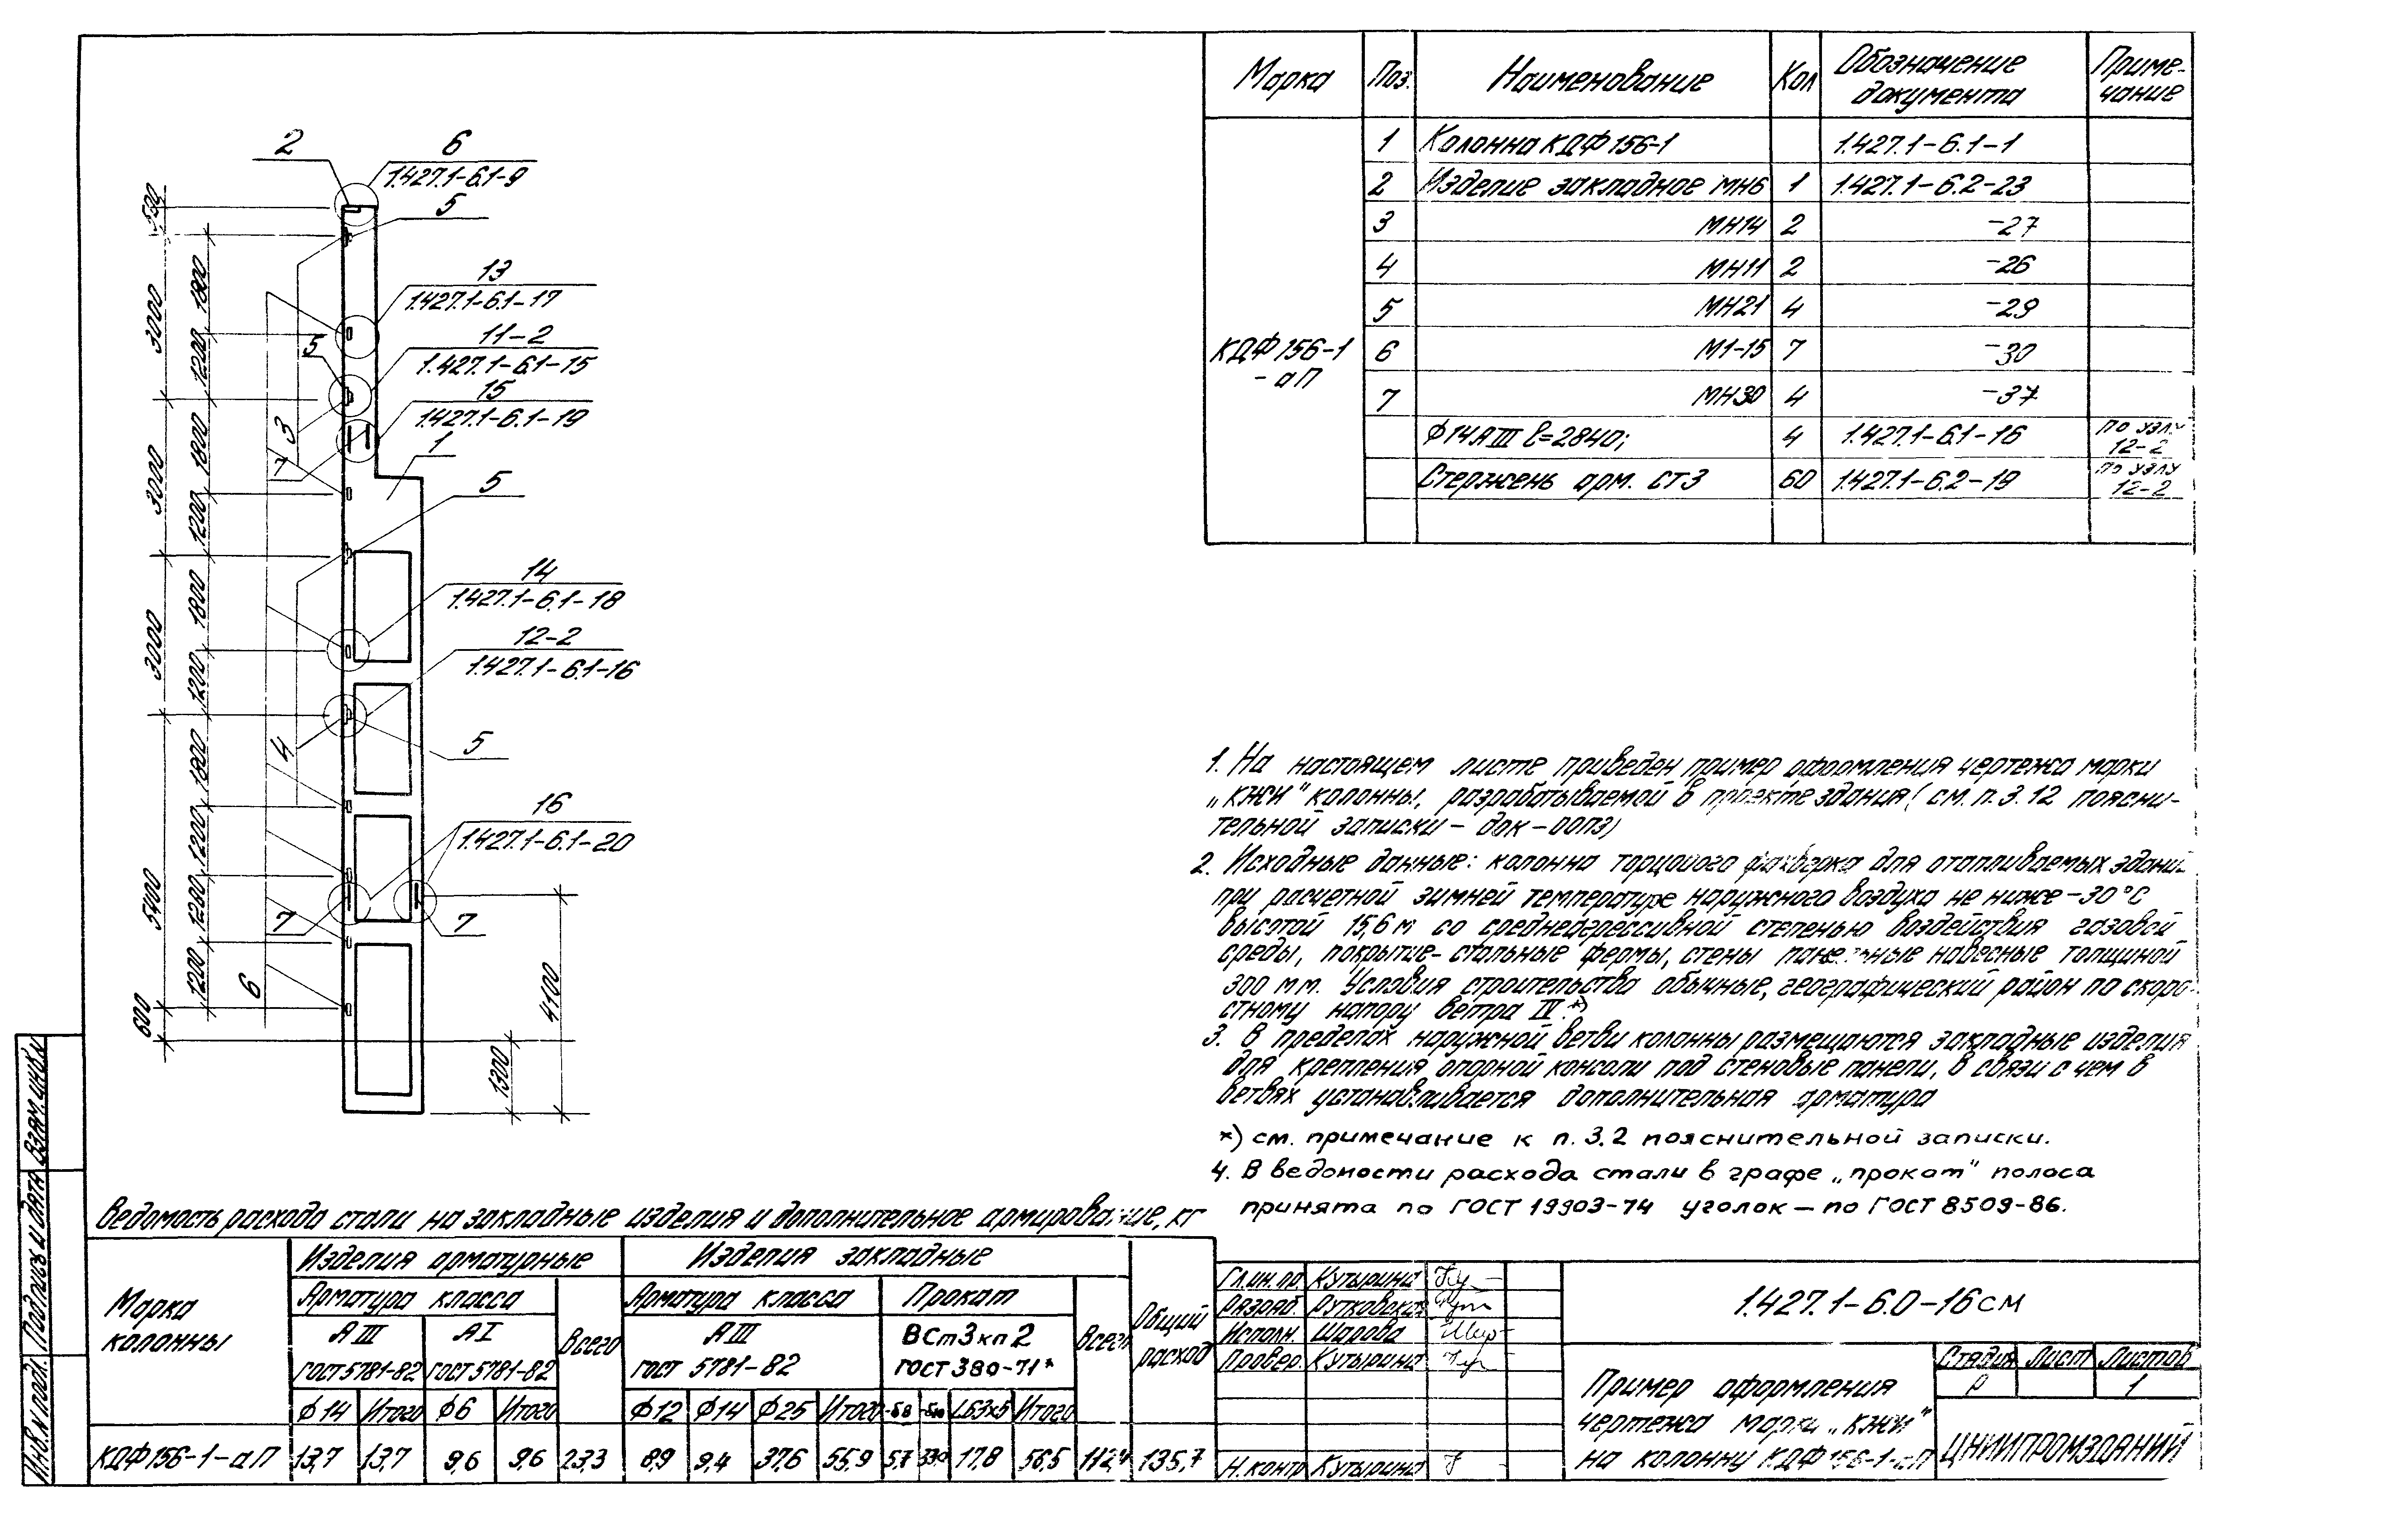 2
6
1.427.1-6.1-9
5
13
1.427.1-6.1-17
11-2
1.427.1-6.1-15
5
15
1.427.1-6.1-19
1
3
7
5
14
1.427.1-6.1-18
12-2
1.427.1-6.1-16
4
5
16
1.427.1-6.1-20
7
7
6
3000
3000
3000
5400
600
1800
1200
1800
1200
1800
1200
1800
1200
1200
1200
4100
1300
Марка Поз. Наименование Кол Обозначение документа Приме-чание
КДФ156-1
-аП
1 Колонна КДФ156-1 1.427.1-6.1-1
2 Изделие закладное МН6 1 1.427.1-6.2-23
3 МН14 2 -27
4 МН11 2 -26
5 МН21 4 -29
6 М1-15 7 -30
7 МН30 4 -37
Ф14АIII ℓ=2840; 4 1.427.1-6.1-16 по узлу 12-2
Стержень арм. СТ3 60 1.427.1-6.2-19 по узлу 12-2
1. На настоящем листе приведен пример оформления чертежа марки
„КЖИ" колонны, разрабатываемой в проекте здания (см. п. 3.12 поясни-
тельной записки - док -00ПЗ)
2. Исходные данные: колонна торцового фахверка для отапливаемых зданий
при расчетной зимней температуре наружного воздуха не ниже -30°С
высотой 15,6 м со среднеагрессивной степенью воздействия газовой
среды, покрытие- стальные фермы, стены панельные навесные толщиной
300 мм. Условия строительства обычные, географический район по скоро-
стному напору ветра IV.*)
3. В пределах наружной ветви колонны размещаются закладные изделия
для крепления опорной консоли под стеновые панели, в связи с чем в
ветвях устанавливается дополнительная арматура
*) см. примечание к п. 3.2 пояснительной записки.
4. В ведомости расхода стали в графе „прокат" полоса
принята по ГОСТ 19903-74 уголок – по ГОСТ 8509-86.
Ведомость расхода стали на закладные изделия и дополнительное армирование, кг
Марка колонны
Изделия арматурные Изделия закладные Общий расход
Арматура класса Всего Арматура класса Прокат Всего
АIII АI АIII ВСт3кп2
ГОСТ5781-82 ГОСТ5781-82 ГОСТ 5781-82 ГОСТ 380-71*
Ф14 Итого Ф6 Итого Ф12 Ф14 Ф25 Итого -δ8 -δ10 L63х5 Итого
КДФ156-1-аП 13,7 13,7 9,6 9,6 23,3 8,9 9,4 37,6 55,9 5,7 33,0 17,8 56,5 112,4 135,7
Гл.ин.пр. Кутырина
Разраб. Рутковская
Исполн. Шарова
Провер. Кутырина
Н.контр Кутырина
1.427.1-6.0-16см
Пример оформления
чертежа марки „КЖИ"
на колонну КДФ156-1-аП
Стадия Лист Листов
Р 1
ЦНИИПРОМЗДАНИЙ
Инв.№ подл. Подпись и дата Взам.инв.№